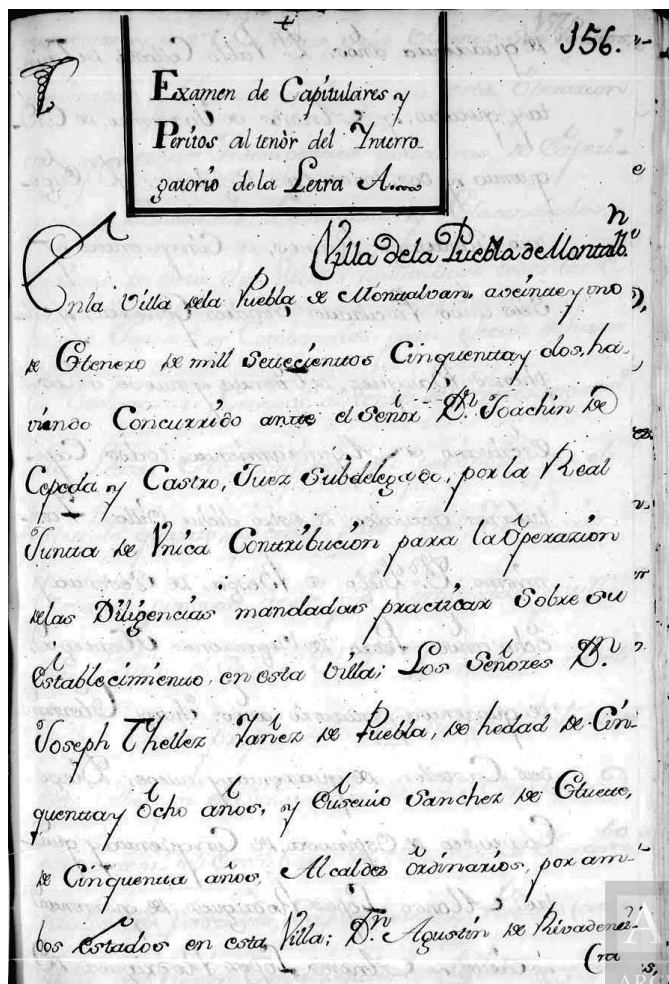 156.
Examen de Capitulares y
Peritos al tenòr del Interro-
gatorio de la Letra A....
Villa de la Puebla de Montalbn.
En la Villa de la Puebla de Montalvan, a veinte y uno
de Henero de mill settecienttos Cinquentta y dos, ha-
viendo Concurrido antte el Señor Dn. Joachin de
Cepeda y Castro, Juez Subdelegado, por la Real
Juntta de Vnica Conttribución para la Operazión
de las Diligencias mandadas practicar Sobre su
establecimientto, en esta Villa; Los Señores Dn.
Joseph Thellez Yañez de Puebla, de hedad de Cin-
quentta y Ocho años, y Eusevio Sanchez de
de Cinquentta años, Alcaldes Ordinarios, por am-
bos estados en esta Villa; Dn. Agustin de Rivadenéi-
ra